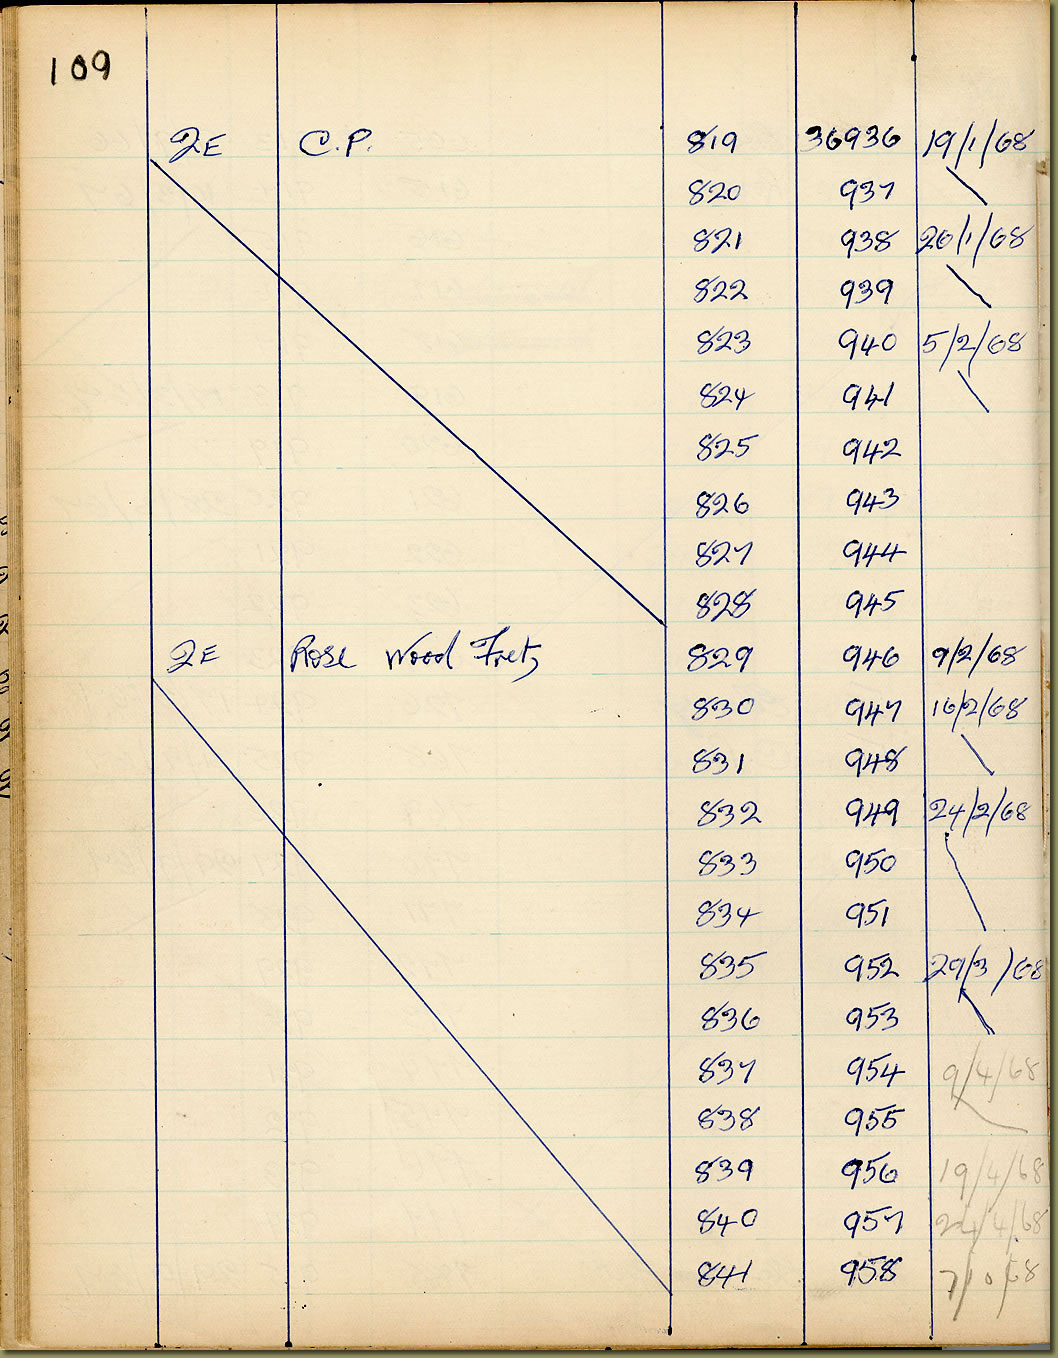 109
2E C.P. 819 36936 19/1/68
820 937
821 938 26/1/68
822 939
823 940 5/2/68
824 941
825 942
826 943
827 944
828 945
2E Rose Wood Frets 829 946 9/2/68
830 947 16/2/68
831 948
832 949 24/2/68
833 950
834 951
835 952 29/3/68
836 953
837 954 9/4/68
838 955
839 956 19/4/68
840 957 24/4/68
841 958